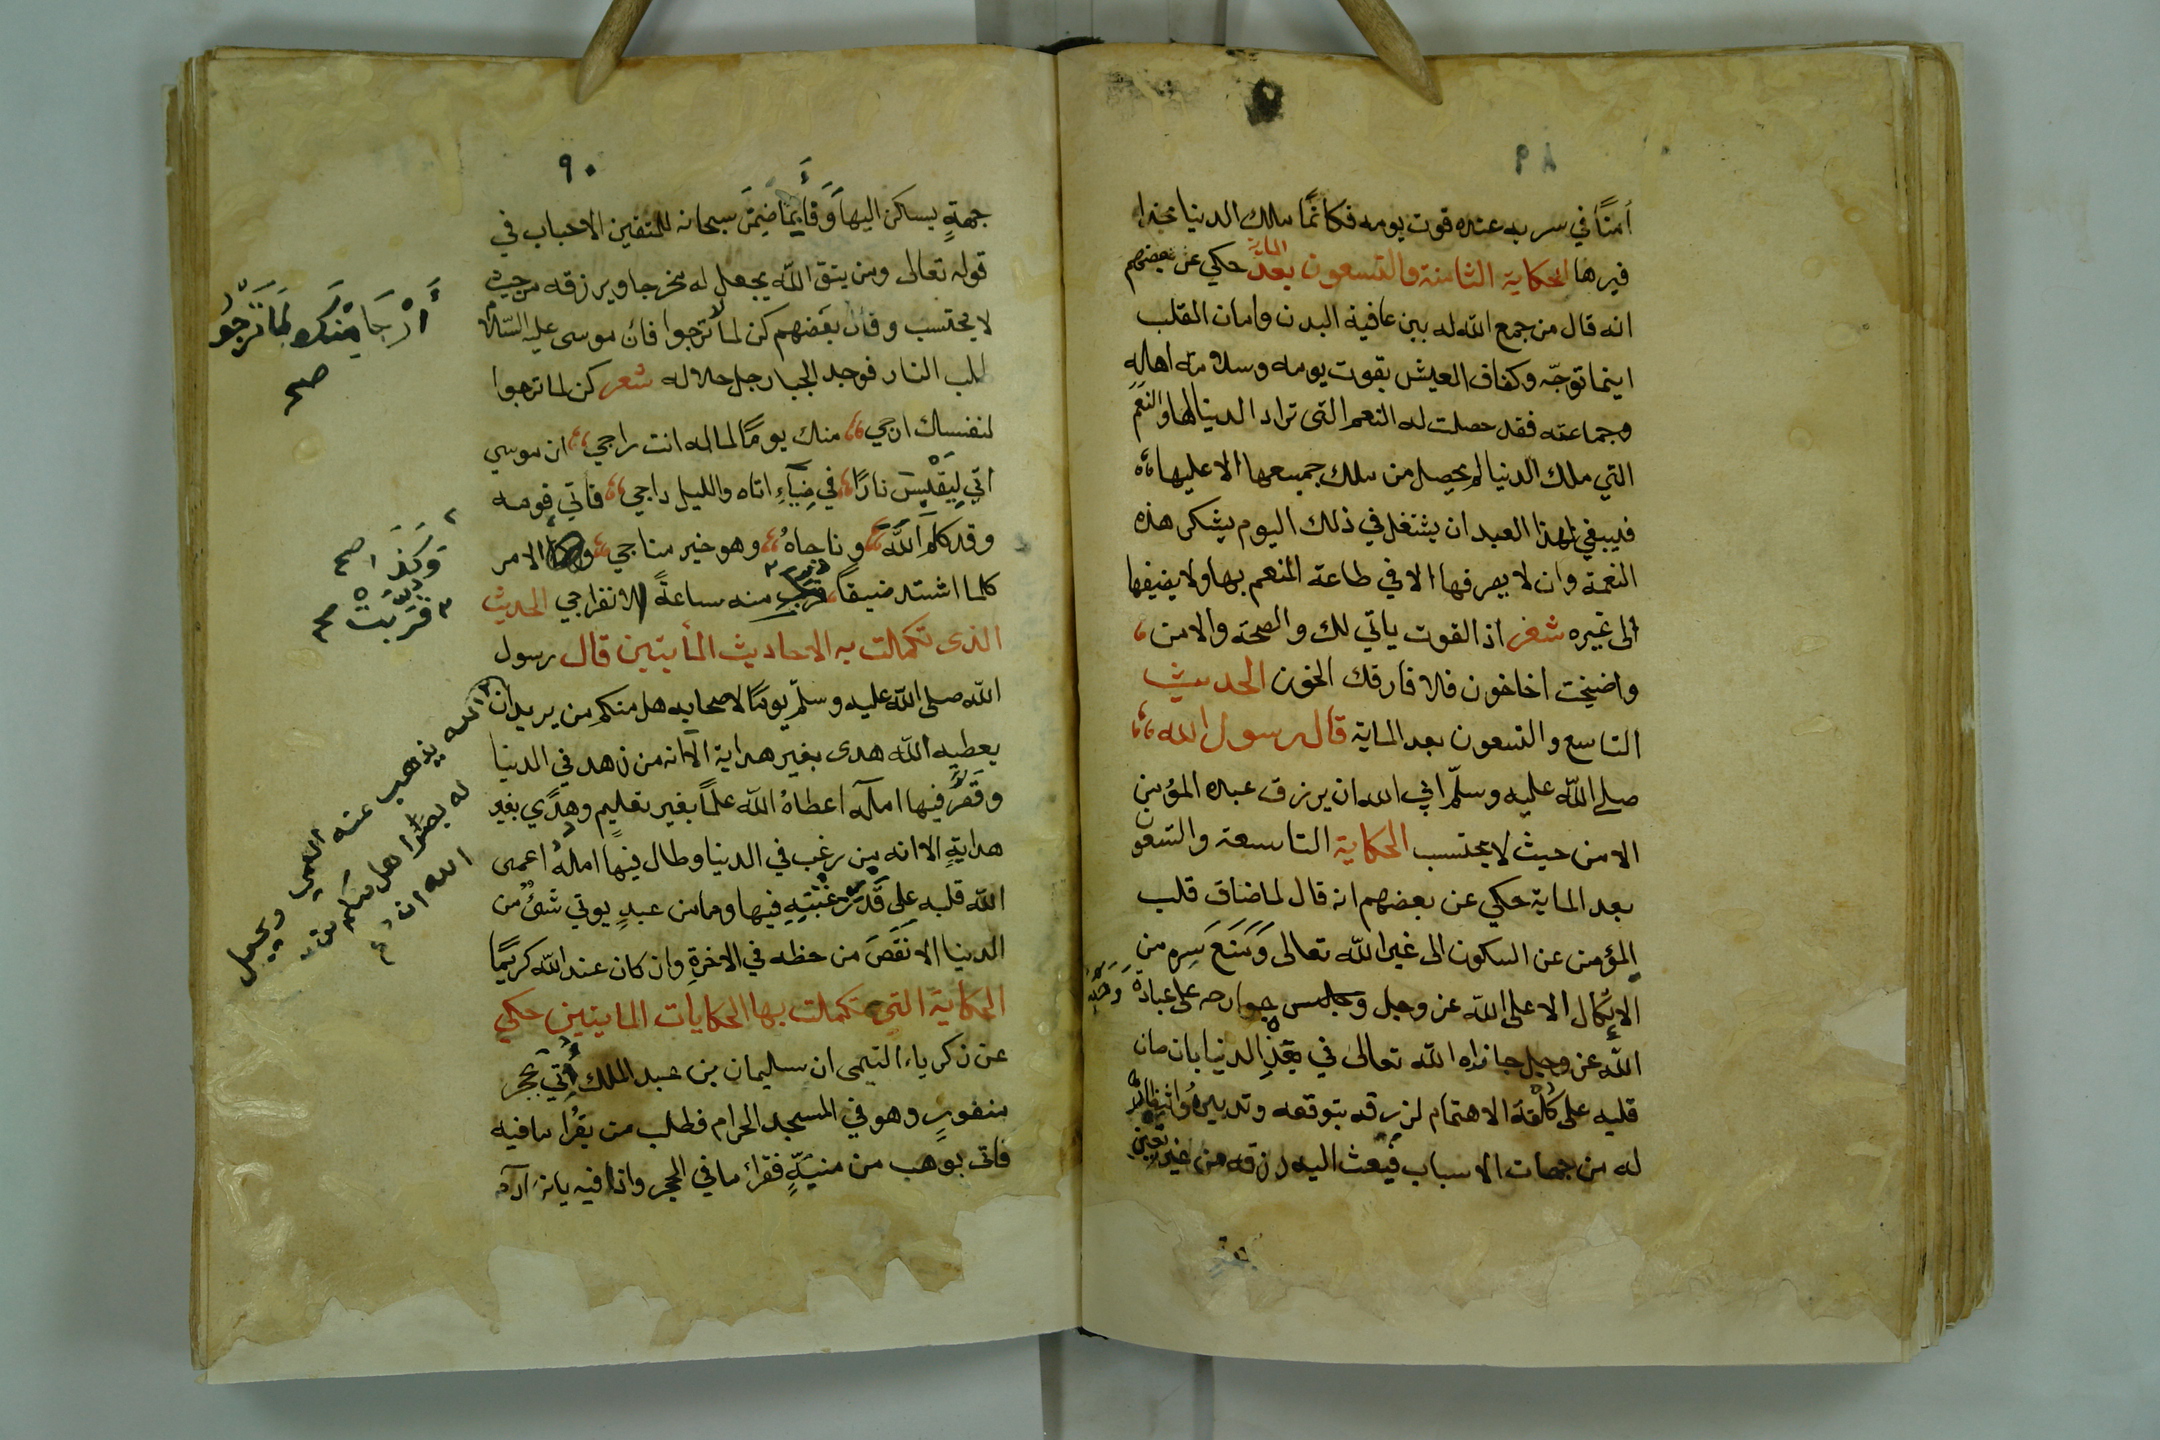 ٨٩
آمنًا في سربه عنده قوت يومه فكأنّما ملك الدنيا بحذا
فيرها الحكاية الثامنة والتسعون بعد الماية حكي عن بعضهم
انه قال من جمع الله له بين عافية البدن وامان القلب
اينما توجّه وكفاف العيش بقوت يومه وسلامة اهله
وجماعته فقد حصلت له النعم التى تراد الدنيا لها والنعم
التي ملك الدنيا لم يحصل من ملك جميعها الا عليها
فينبغي لهذا العبد ان يشتغل في ذلك اليوم بشكر هذه
النعمة وان لا يصرفها الا في طاعة المنعم بها ولا يضيفها
الى غيره شعر اذ القوت ياتي لك والصحة والامن
واضبحت اخاخون فلا فارقك الخون الحديث
التاسع والتسعون بعد الماية قال رسول الله
صلى الله عليه وسلّم ابي الله ان يرزق عبده المؤمن
الا من حيث لا يحتسب الحكاية التاسعة والتسعون
بعد الماية حكي عن بعضهم انه قال لما ضاق قلب
المؤمن عن السكون الى غير الله تعالى ومنع سره من
الاتكال الا على الله عز وجل وحبس جوارحه على عبادة
الله عز وجل جازاه الله تعالى في الدنيا بان صان
قلبه على كلفة الاهتمام لرزقه بتوقعه وتدبيره
له من جهات الاسباب فيبعث اليه رزقه من غير تعين
٩٠
جهةٍ يساكن اليها وفأ بما ضمن سبحانه للمتقين الاحباب في
قوله تعالى ومن يتق الله يجعل له مخرجا ويرزقه من حيث
لا يحتسب وقال بعضهم كن لما لا ترجوا فان موسى عليه السلام
طلب النار فوجد الجبار جل جلاله شعر كن لما ترجوا
لنفسك ارجي منك يومًا لما له انت راجي ان موسي
اتي ليقبس نارًا في ضيآء اتاه والليل داجي فاتي قومه
وقد كلم الله وناجاهُ وهو خير مناجي الامر
كلما اشتد ضيقًا منه ساعةً الانفراجي الحديث
الذى تكملت به الاحاديث المأيتين قال رسول
الله صلى الله عليه وسلّم يومًا لاصحابه هل منكم من يريد ان
يعطيه الله هدى بغير هداية الا انه من زهد في الدنيا
وقصّر فيها امله اعطاهُ الله علمًا بغير تعليم وهدًي بغير
هدايةٍ الا انه من رغب في الدنيا وطال فيها املهُ اعمى
الله قلبه على قدر رغبتهِ فيها وما من عبدٍ يوتي شئٌ من
الدنيا الا نقص من حظه في الاخرة وان كان عند الله كريمًا
الحكاية التى تكملت بها الحكايات المايتين حكي
عن زكرياء التيمى ان سليمان بن عبد الملك أُتي بحجر
منقورٍ وهو في المسجد الحرام فطلب من يقرأ ما فيه
فاتى بوهب من منبّهٍ فقرأ ما في الحجر واذا فيه يا بن آدم
أرجا منك لما ترجو
صح
وكذا صح
قربت صح
الله يذهب عنه العمي ويجعل
له بصيرا هل منكم من
الله ان